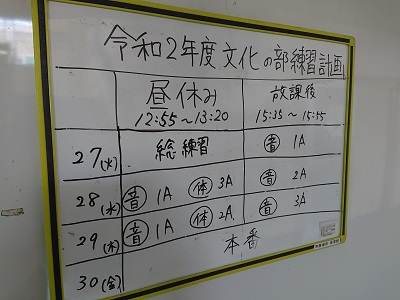 令和2年度文化の部練習計画
昼休み 放課後
12:55〜13:20 15:35〜15:55
27(火) 総練習 音 1A
28(水) 音 1A 体 3A 音 2A
29(木) 音 1A 体 2A 音 3A
30(金) 本番